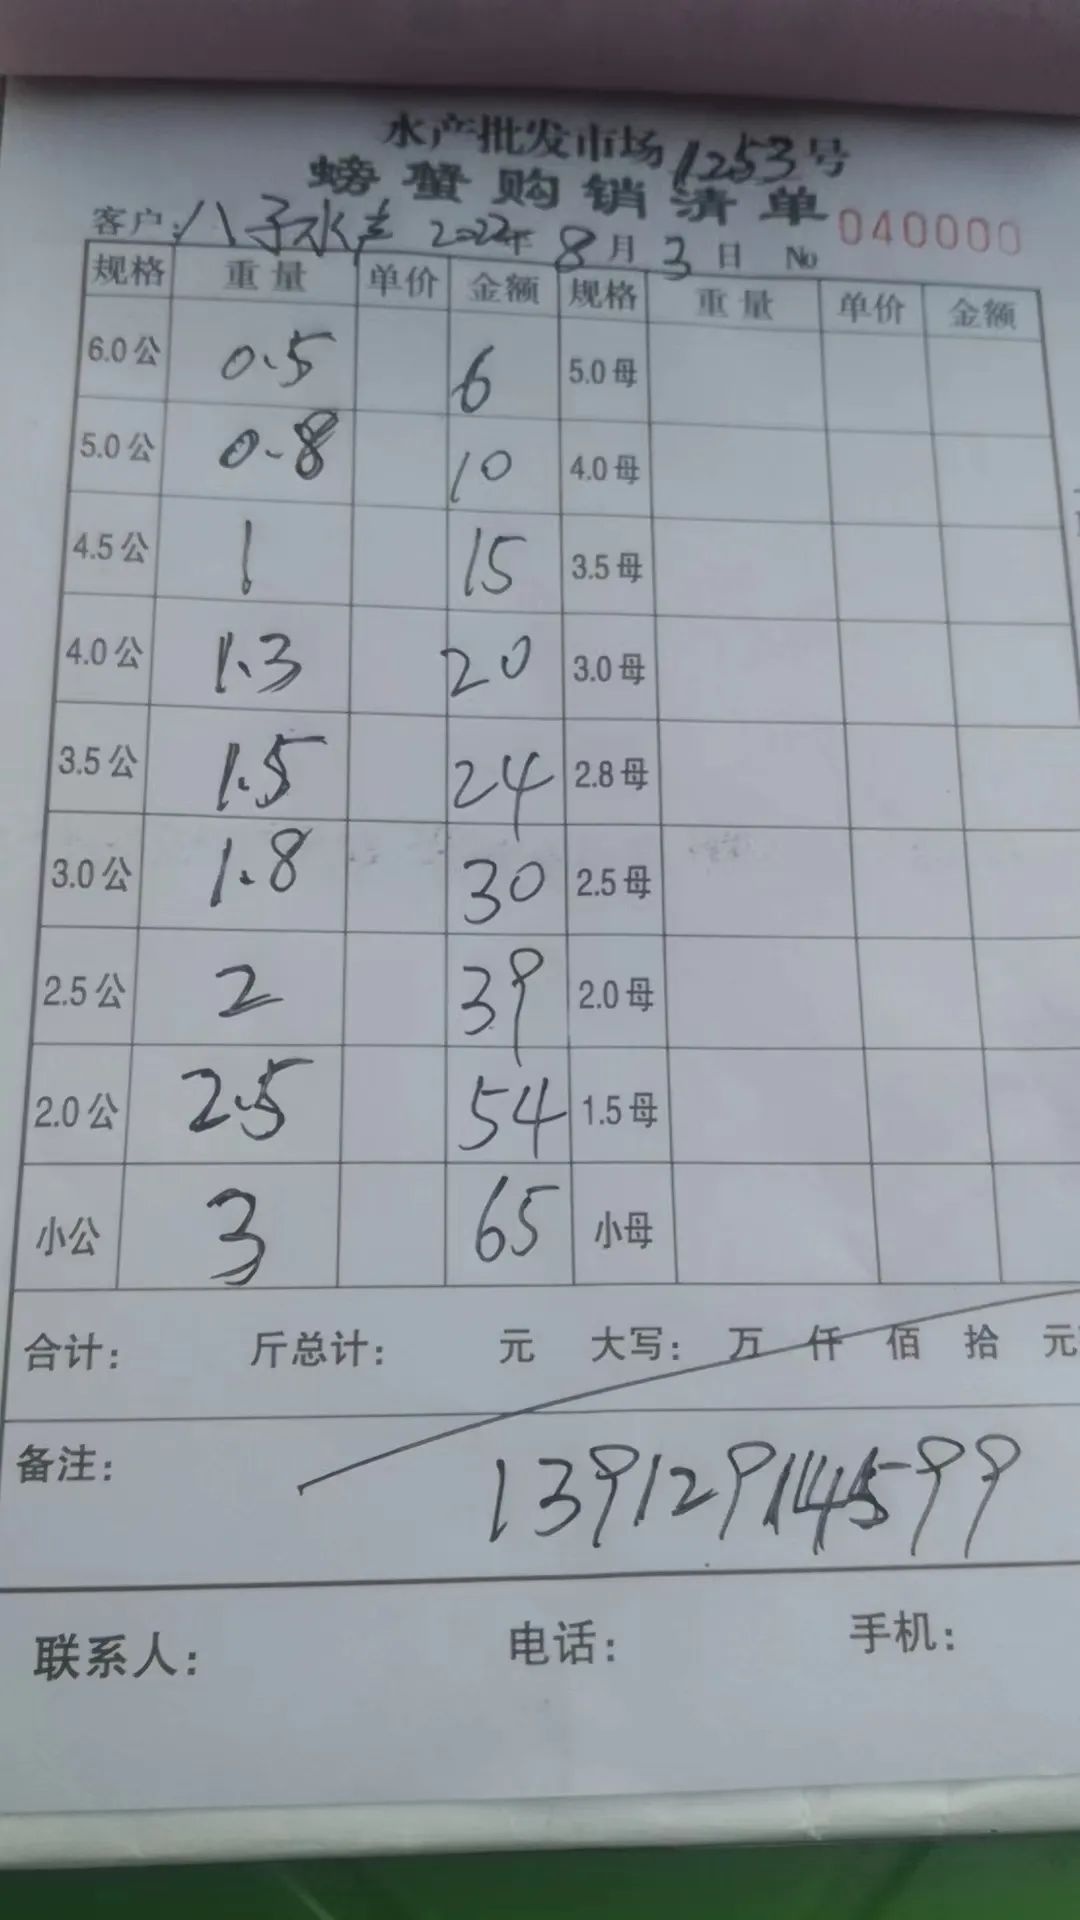 水产批发市场1253号
螃蟹购销清单
客户:八子水产 2022年8月3日 No 040000
规格 重量 单价 金额 规格 重量 单价 金额
6.0公 0.5 6 5.0母
5.0公 0.8 10 4.0母
4.5公 1 15 3.5母
4.0公 1.3 20 3.0母
3.5公 1.5 24 2.8母
3.0公 1.8 30 2.5母
2.5公 2 39 2.0母
2.0公 2.5 54 1.5母
小公 3 65 小母
合计: 斤总计: 元 大写: 万 仟 佰 拾 元
备注:
联系人: 电话: 手机: